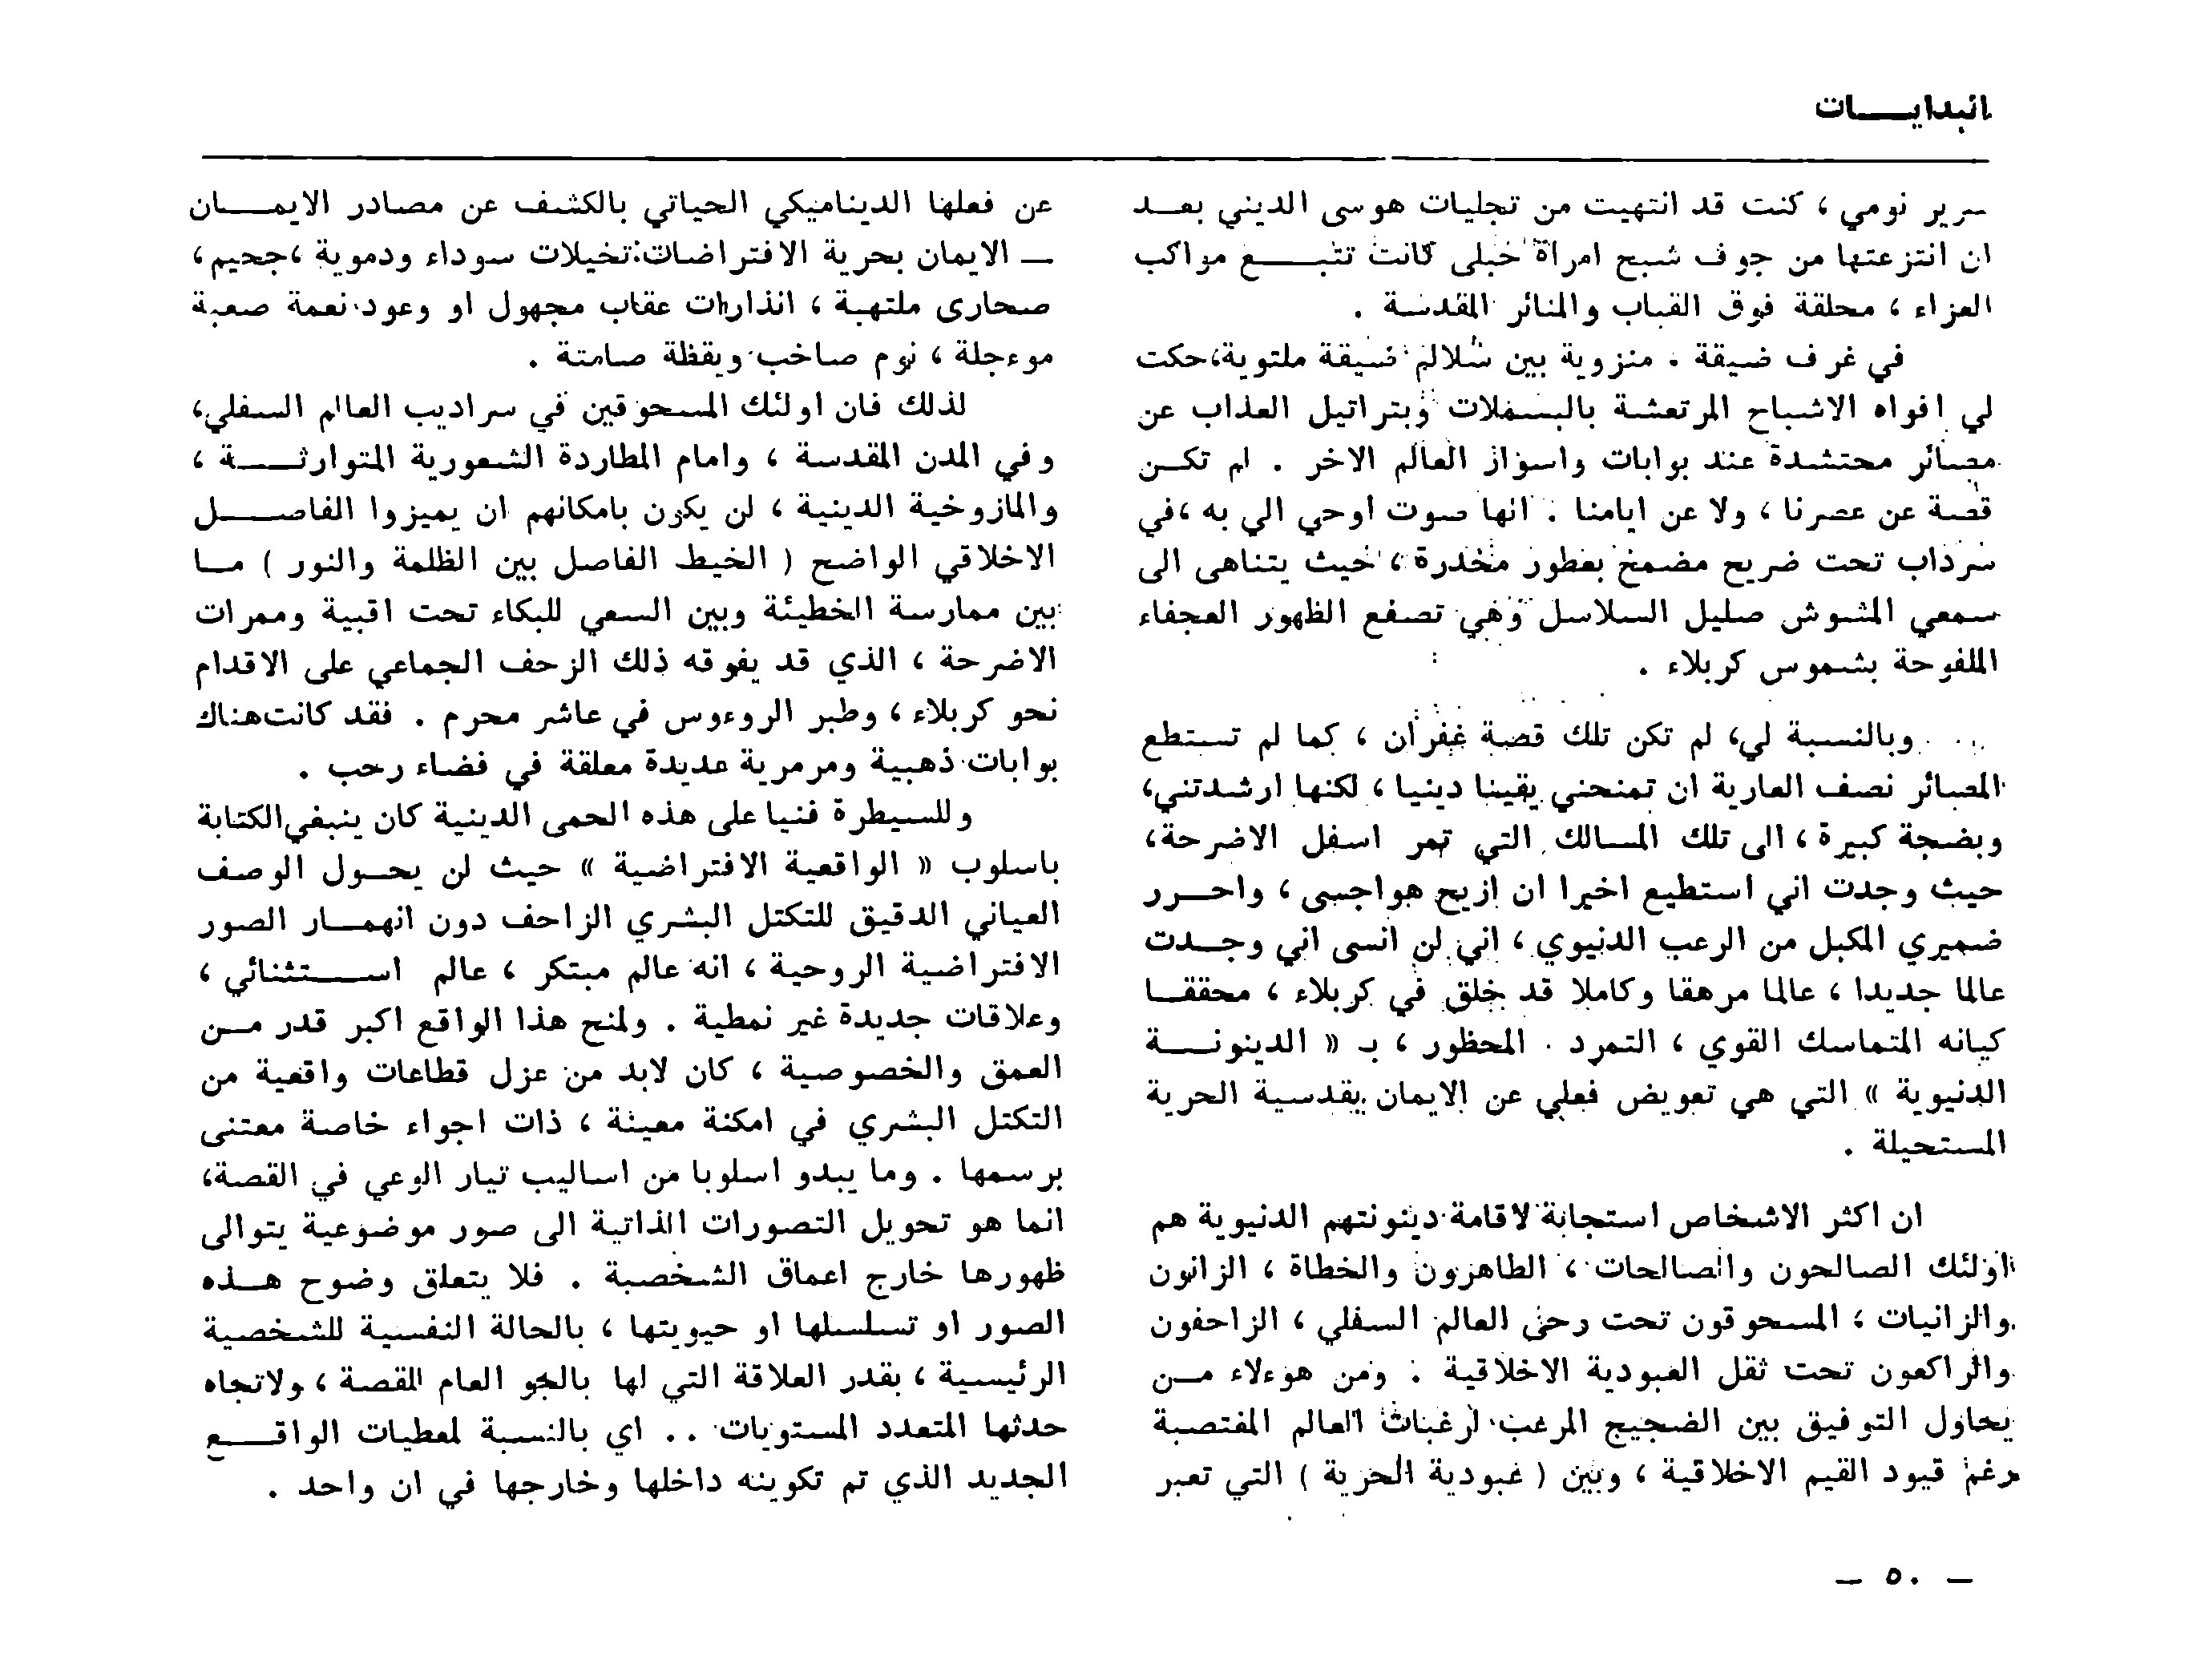 البدايـــات
سرير نومي ، كنت قد انتهيت من تجليات هوسى الديني بعـد
ان انتزعتها من جوف شبح امرأة حبلى كانت تتبـــع مواكب
العزاء ، محلقة فوق القباب والمنائر المقدسة .
في غرف ضيقة . منزوية بين سلالم ضيقة ملتوية،حكت
لي افواه الاشباح المرتعشة بالبسملات وبتراتيل العذاب عن
مصائر محتشدة عند بوابات واسوار العالم الاخر . لم تكـن
قصة عن عصرنا ، ولا عن ايامنا . انها صوت اوحي الي به ،في
سرداب تحت ضريح مضمخ بعطور مخدرة ، حيث يتناهى الى
سمعي المشوش صليل السلاسل وهي تصفع الظهور العجفاء
الملفوحة بشموس كربلاء .
وبالنسبة لي، لم تكن تلك قصة غفران ، كما لم تستطع
المصائر نصف العارية ان تمنحني يقينا دينيا ، لكنها ارشدتني،
وبضجة كبيرة ، الى تلك المسالك التي تمر اسفل الاضرحة،
حيث وجدت اني استطيع اخيرا ان ازيح هواجسى ، واحـرر
ضميري المكبل من الرعب الدنيوي ، اني لن انسى اني وجـدت
عالما جديدا ، عالما مرهقا وكاملا قد خلق في كربلاء ، محققـا
كيانه المتماسك القوي ، التمرد المحظور ، بـ « الدينونـــة
الدنيوية » التي هي تعويض فعلي عن الايمان بقدسية الحرية
المستحيلة .
ان اكثر الاشخاص استجابة لاقامة دينونتهم الدنيوية هم
اولئك الصالحون والصالحات ، الطاهرون والخطاة ، الزانون
والزانيات ، المسحوقون تحت رحى العالم السفلي ، الزاحفون
والراكعون تحت ثقل العبودية الاخلاقية . ومن هوءلاء مـن
يحاول التوفيق بين الضجيج المرعب لرغبات العالم المغتصبة
رغم قيود القيم الاخلاقية ، وبين ( عبودية الحرية ) التي تعبر
عن فعلها الديناميكي الحياتي بالكشف عن مصادر الايمـــان
ـ الايمان بحرية الافتراضات:تخيلات سوداء ودموية ،جحيم،
صحارى ملتهبة ، انذارات عقاب مجهول او وعود نعمة صعبة
موءجلة ، نوم صاخب ويقظة صامتة .
لذلك فان اولئك المسحوقين في سراديب العالم السفلي،
وفي المدن المقدسة ، وامام المطاردة الشعورية المتوارثـــة ،
والمازوخية الدينية ، لن يكون بامكانهم ان يميزوا الفاصـــل
الاخلاقي الواضح ( الخيط الفاصل بين الظلمة والنور ) مـا
بين ممارسة الخطيئة وبين السعي للبكاء تحت اقبية وممرات
الاضرحة ، الذي قد يفوقه ذلك الزحف الجماعي على الاقدام
نحو كربلاء ، وطبر الروءوس في عاشر محرم . فقد كانت هناك
بوابات ذهبية ومرمرية عديدة معلقة في فضاء رحب .
وللسيطرة فنيا على هذه الحمى الدينية كان ينبغي الكتابة
باسلوب « الواقعية الافتراضية » حيث لن يحـول الوصف
العياني الدقيق للتكتل البشري الزاحف دون انهمـار الصور
الافتراضية الروحية ، انه عالم مبتكر ، عالم اســـتثنائي ،
وعلاقات جديدة غير نمطية . ولمنح هذا الواقع اكبر قدر مـن
العمق والخصوصية ، كان لابد من عزل قطاعات واقعية من
التكتل البشري في امكنة معينة ، ذات اجواء خاصة معتنى
برسمها . وما يبدو اسلوبا من اساليب تيار الوعي في القصة،
انما هو تحويل التصورات الذاتية الى صور موضوعية يتوالى
ظهورها خارج اعماق الشخصية . فلا يتعلق وضوح هـذه
الصور او تسلسلها او حيويتها ، بالحالة النفسية للشخصية
الرئيسية ، بقدر العلاقة التي لها بالجو العام للقصة ، ولاتجاه
حدثها المتعدد المستويات .. اي بالنسبة لمعطيات الواقـــع
الجديد الذي تم تكوينه داخلها وخارجها في ان واحد .
ـ ٥٠ ـ